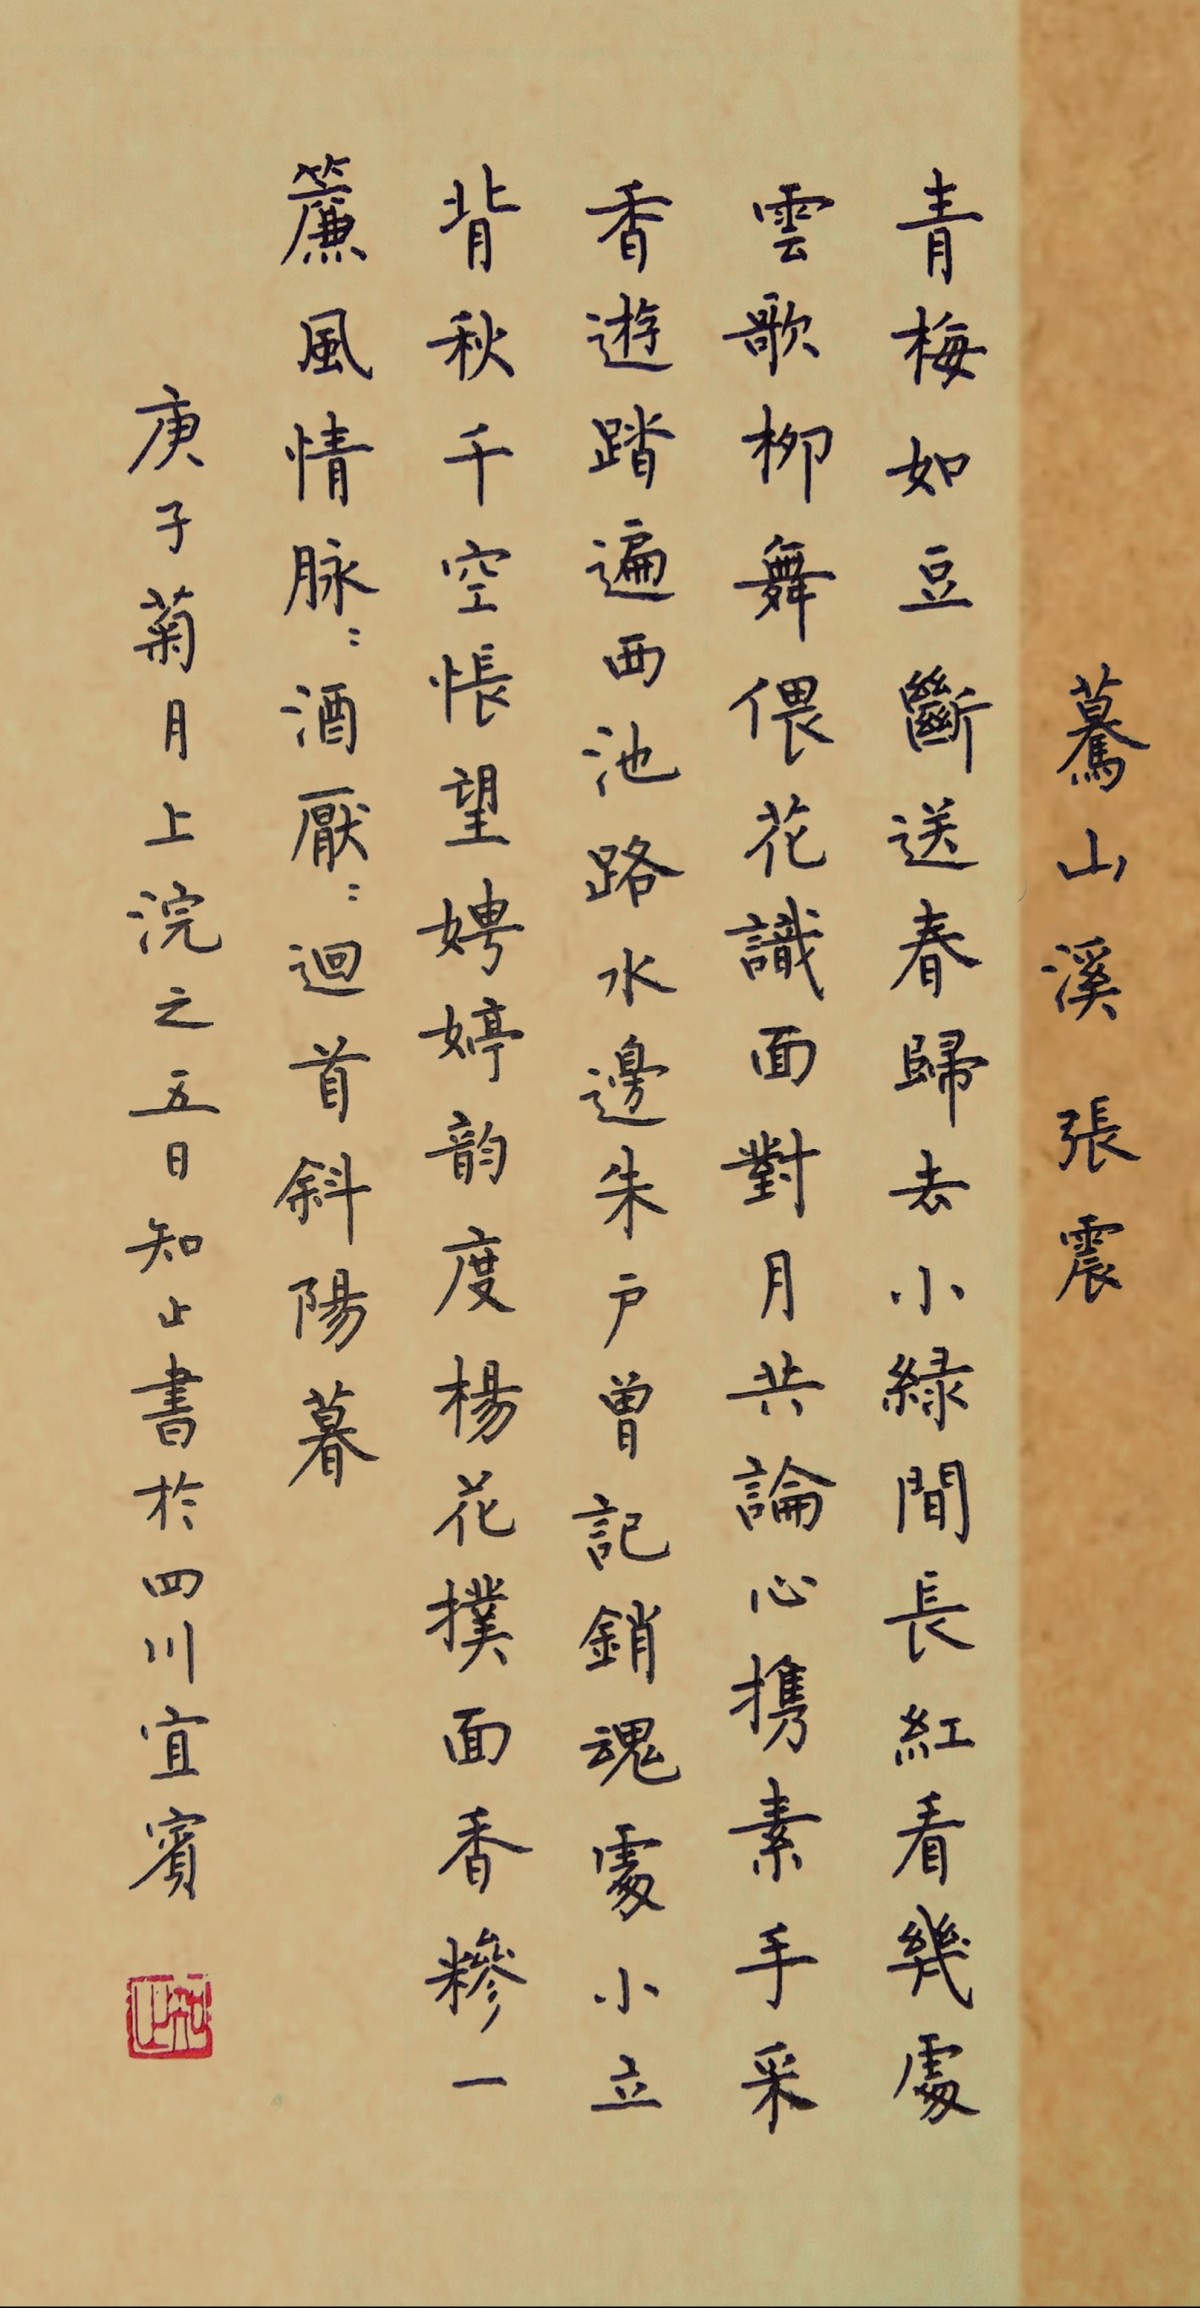 驀山溪 張震
青梅如豆斷送春歸去小綠間長紅看幾處
雲歌柳舞偎花識面對月共論心携素手采
香遊踏遍西池路水邊朱户曾記銷魂處小立
背秋千空悵望娉婷韵度楊花撲面香糝一
簾風情脉〻酒厭〻迴首斜陽暮
庚子菊月上浣之五日知止書於四川宜賓
知止